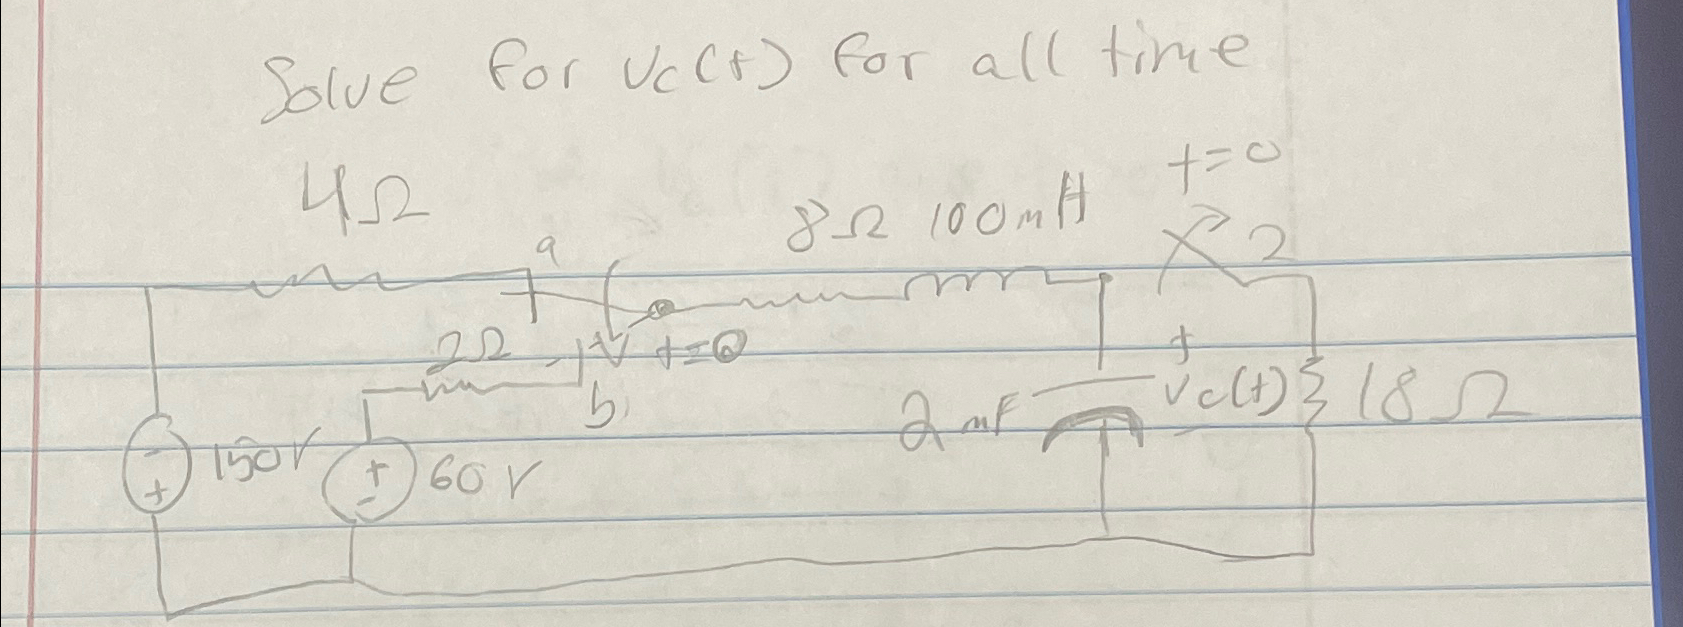 Solve for Vc(t) for all time
4Ω
8Ω 100mH
t=0
a
2
2Ω
t=0
b
+
150V
- +
+ -
60V
2mF
Vc(t)
-
18Ω